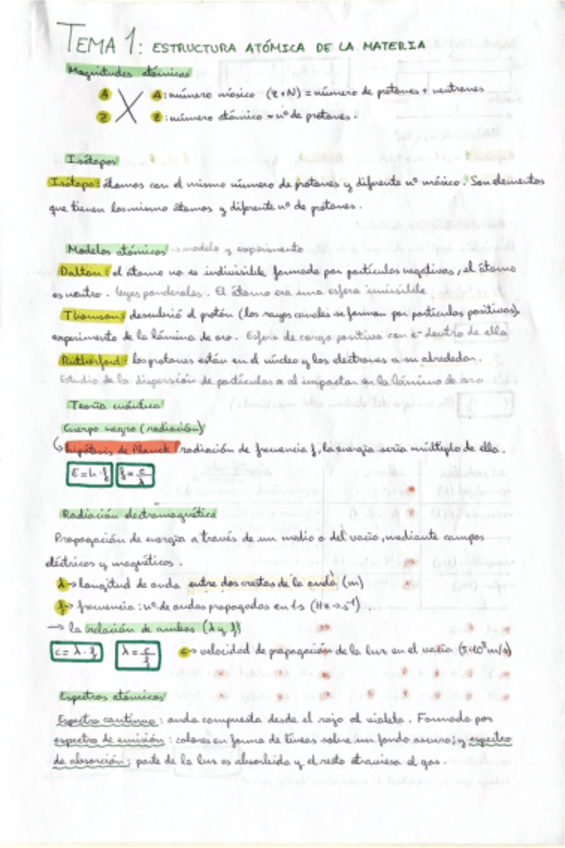 TEMA 1: ESTRUCTURA ATÓMICA DE LA MATERIA
Magnitudes atómicas
A X A: número másico (Z+N) = número de protones + neutrones
Z Z: número atómico = nº de protones.
Isótopos
Isótopo: átomos con el mismo número de protones y diferente nº másico. Son elementos
que tienen los mismo átomos y diferente nº de protones.
Modelos atómicos → modelo y experimento
Dalton: el átomo no es indivisible formado por partículas negativas, el átomo
es neutro. leyes ponderales. El átomo era una esfera invisible
Thomson: descubrió el protón (los rayos canales se forman por partículas positivas),
experimento de la lámina de oro. Esfera de carga positiva con e- dentro de ella
Rutherford: los protones están en el núcleo y los electrones a su alrededor.
Estudio de la dispersión de partículas α al impactar en la lámina de oro
Teoría cuántica
Cuerpo negro (radiación)
↳ hipótesis de Planck: radiación de frecuencia f, la energía sería múltiplo de ella.
E = h · f
Radiación electromagnética
Propagación de energía a través de un medio o del vacío, mediante campos
eléctricos y magnéticos.
λ → longitud de onda entre dos crestas de la onda (m)
f → frecuencia: nº de ondas propagadas en 1s (Hz → s⁻¹).
→ la relación de ambas (λ y f)
c = λ · f λ = c/f c → velocidad de propagación de la luz en el vacío (3·10⁸ m/s)
Espectros atómicos
Espectro continuo: onda compuesta desde el rojo al violeta. Formado por
espectro de emisión: colores en forma de líneas sobre un fondo oscuro; y espectro
de absorción: parte de la luz es absorbida y el resto atraviesa el gas.